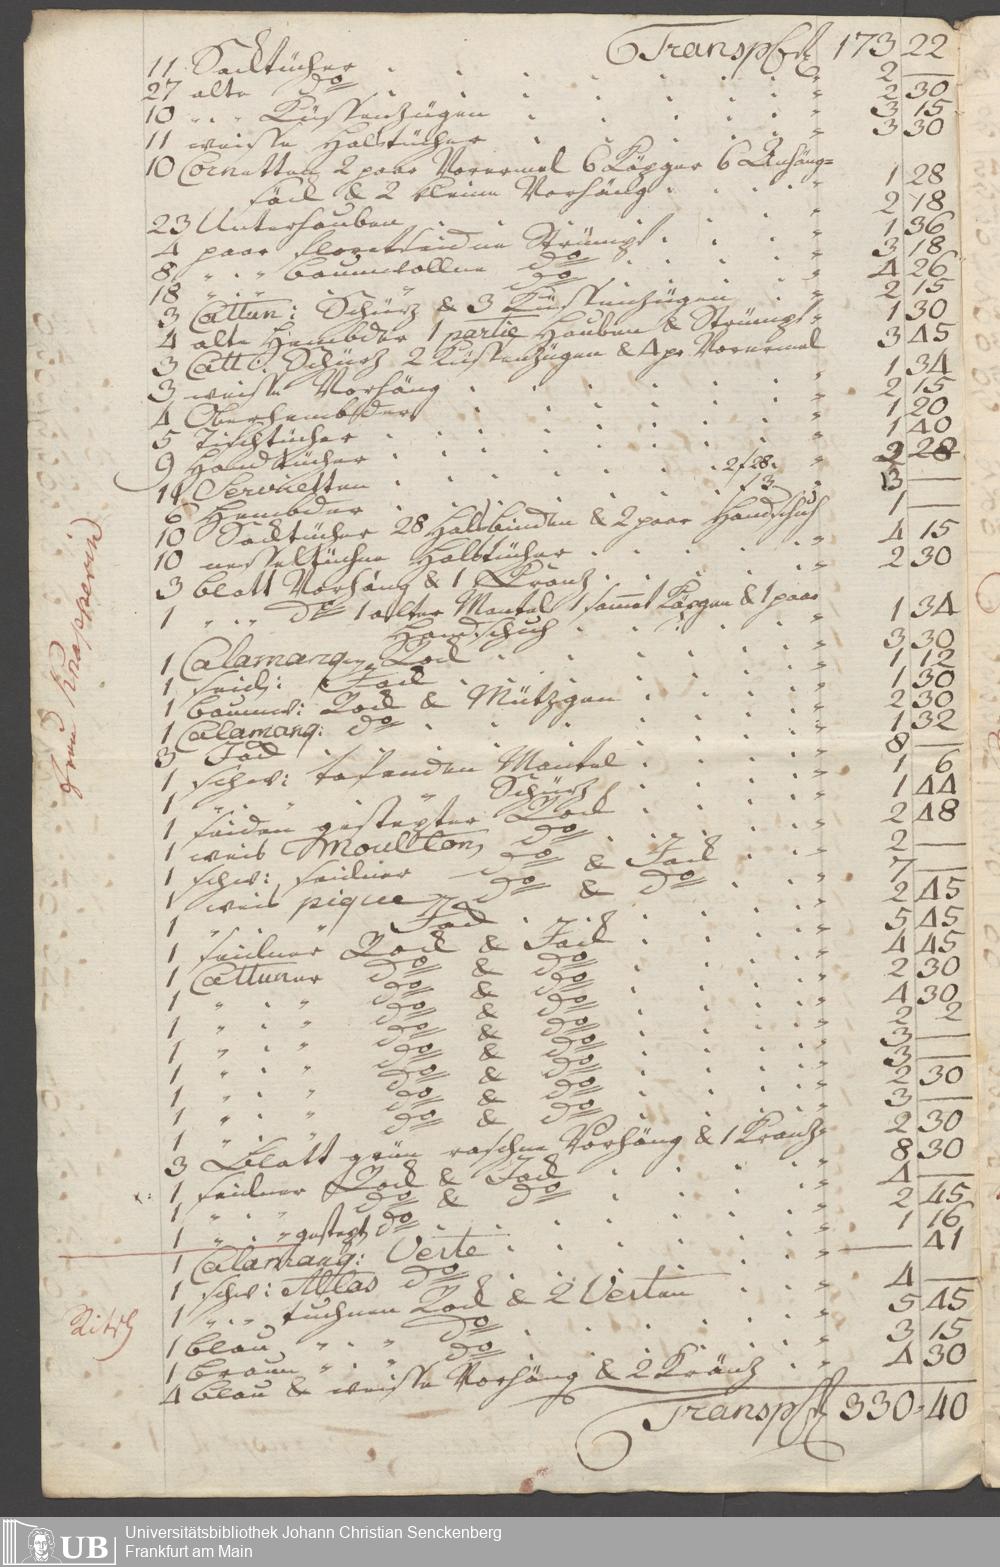 Transp. f 173 22
11 Sacktücher . . . . . . . " 2 —
27 alte do . . . . . . " 2 30
10 " . " Küssenzügen . . . . . " 3 15
11 weisse Halstücher . . . . . " 3 30
10 Cornetten 2 paar Vorermel 6 Käpger 6 Anhäng=
säck & 2 kleine Vorhäng . . . . " 1 28
23 Unterhauben . . . . . . " 2 18
4 paar floretseidne Strümpf . . . . " 1 36
8 " . " baumwollne do . . . . " 3 18
18 " . " " do . . . . " 4 26
3 Cattun: Schürz & 3 Küssenzügen . . " 2 15
4 alte Hembder 1 partie Hauben & Strümpf " 1 30
3 Catt: Schürz 2 Küssenzügen & 4 pr Vorermel 3 45
3 weisse Vorhäng . . . . . . " 1 34
4 Oberhembder . . . . . . " 2 15
5 Tischtücher . . . . . . " 1 20
9 Handtücher . . . . . . " 1 40
14 Servietten . . . . . 2f 28. " 2 28
6 Hembder . . . . . f 3 — " 3 —
10 Sacktücher 28 Halsbinden & 2 paar Handschuh 1 —
10 nesseltüchne Halstücher . . . . " 4 15
3 blatt Vorhäng & 1 Krantz . . . . " 2 30
1 " . " do 1 alter Mantel 1 samet Käpgen & 1 paar
Handschuh . . . . . " 1 34
1 Calamanq. Rock . . . . . " 3 30
1 seid: Jack . . . . . . " 1 12
1 baumw: Rock & Mützgen . . . . " 1 30
1 Calamanq: do . . . . . . " 2 30
3 Jack . . . . . . " 1 32
1 schw: tafenden Mantel . . . . " 8 —
1 " . " " Schürz . . . . " 1 6
1 seiden gestepter Rock . . . . " 1 44
1 weis Moulton do . . . . " 2 48
1 schw: seidner do & Jack . . " 2 —
1 weis pique do & do . . " 7 —
1 " . " Jack . . . . . " 2 45
1 seidner Rock & Jack . . . . " 5 45
1 Cattuner do & do . . . . " 4 45
1 " . " do & do . . . . " 2 30
1 " . " do & do . . . . " 4 30
1 " . " do & do . . . . " 2 2
1 " . " do & do . . . . " 3 —
1 " . " do & do . . . . " 3 —
1 " . " do & do . . . . " 2 30
1 " . " do & do . . . . " 3 —
3 Blatt grün raschne Vorhäng & 1 Krantz " 2 30
1 seidner Rock & Jack . . . . " 8 30
1 " . " do & do . . . . " 4 —
1 " . " gestept do . . . . " 2 45
1 Calamanq: Veste . . . . . " 1 16
1 schw: Atlas do . . . . . " — 41
1 " . " tuchnen Rock & 2 Vesten . . " 4 —
1 blau " . " do . . . . " 5 45
1 braun " . " do . . . . " 3 15
4 blau & weisse Vorhäng & 2 Kräntz . " 4 30
Transp. f 330 " 40
Frau Knapperin
Ritsch
Universitätsbibliothek Johann Christian Senckenberg
Frankfurt am Main
UB